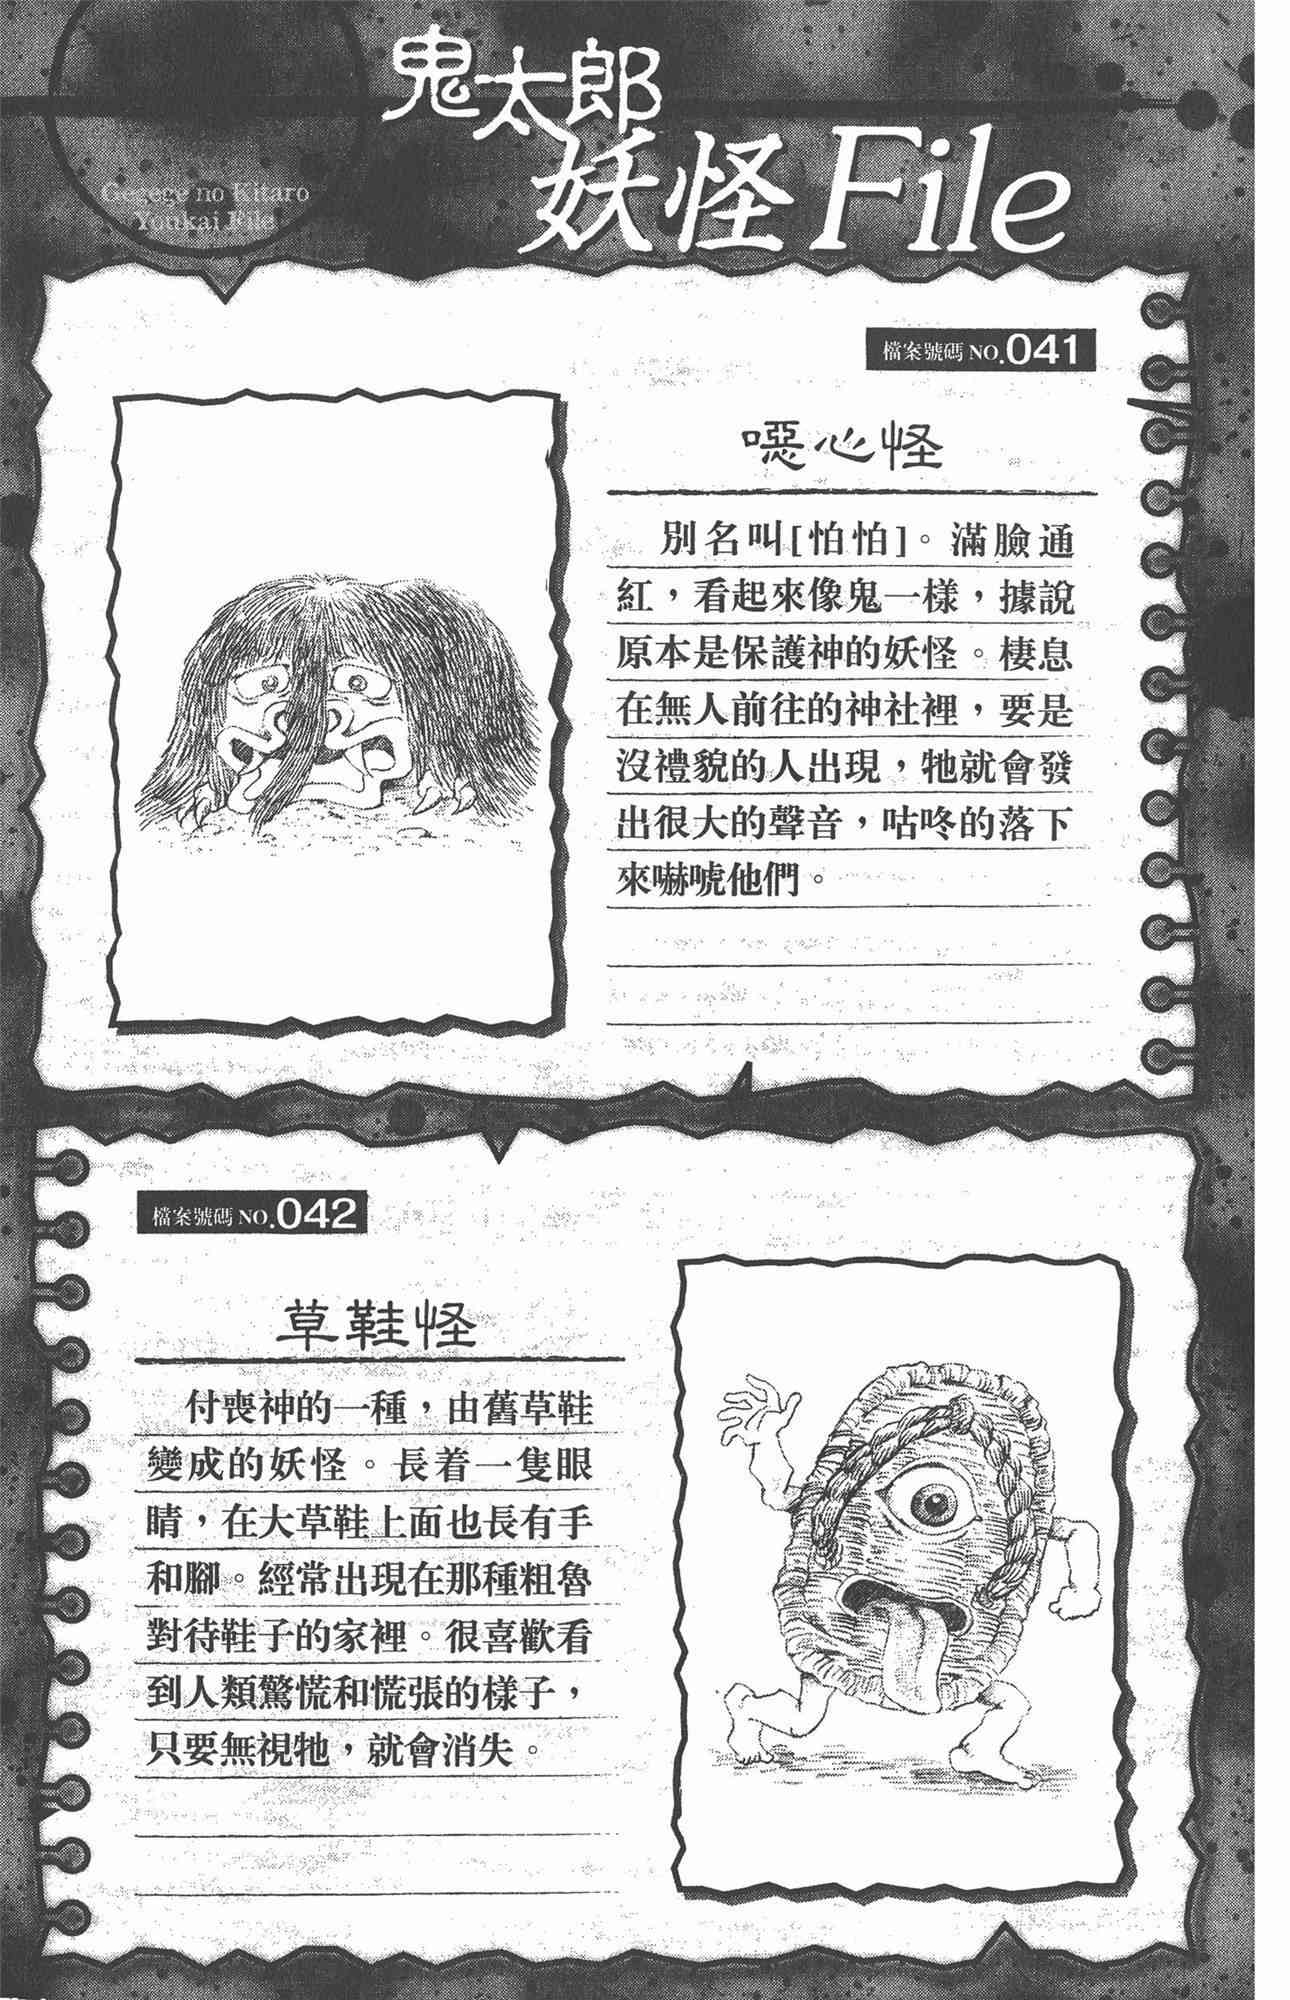 鬼太郎
妖怪File
Gegege no Kitaro
Youkai File
檔案號碼 NO.041
噁心怪
別名叫[怕怕]。滿臉通
紅，看起來像鬼一樣，據說
原本是保護神的妖怪。棲息
在無人前往的神社裡，要是
沒禮貌的人出現，牠就會發
出很大的聲音，咕咚的落下
來嚇唬他們。
檔案號碼 NO.042
草鞋怪
付喪神的一種，由舊草鞋
變成的妖怪。長着一隻眼
睛，在大草鞋上面也長有手
和腳。經常出現在那種粗魯
對待鞋子的家裡。很喜歡看
到人類驚慌和慌張的樣子，
只要無視牠，就會消失。